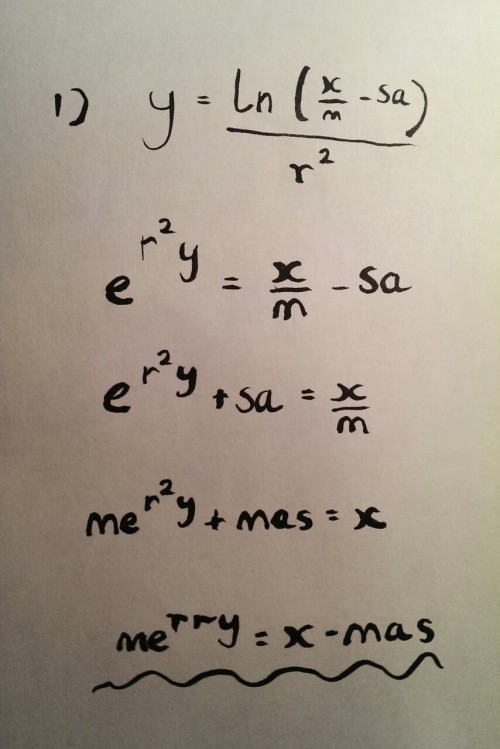 1) y = ln (x/m - sa) / r²
e^(r²y) = x/m - sa
e^(r²y) + sa = x/m
me^(r²y) + mas = x
me^(rry) = x - mas